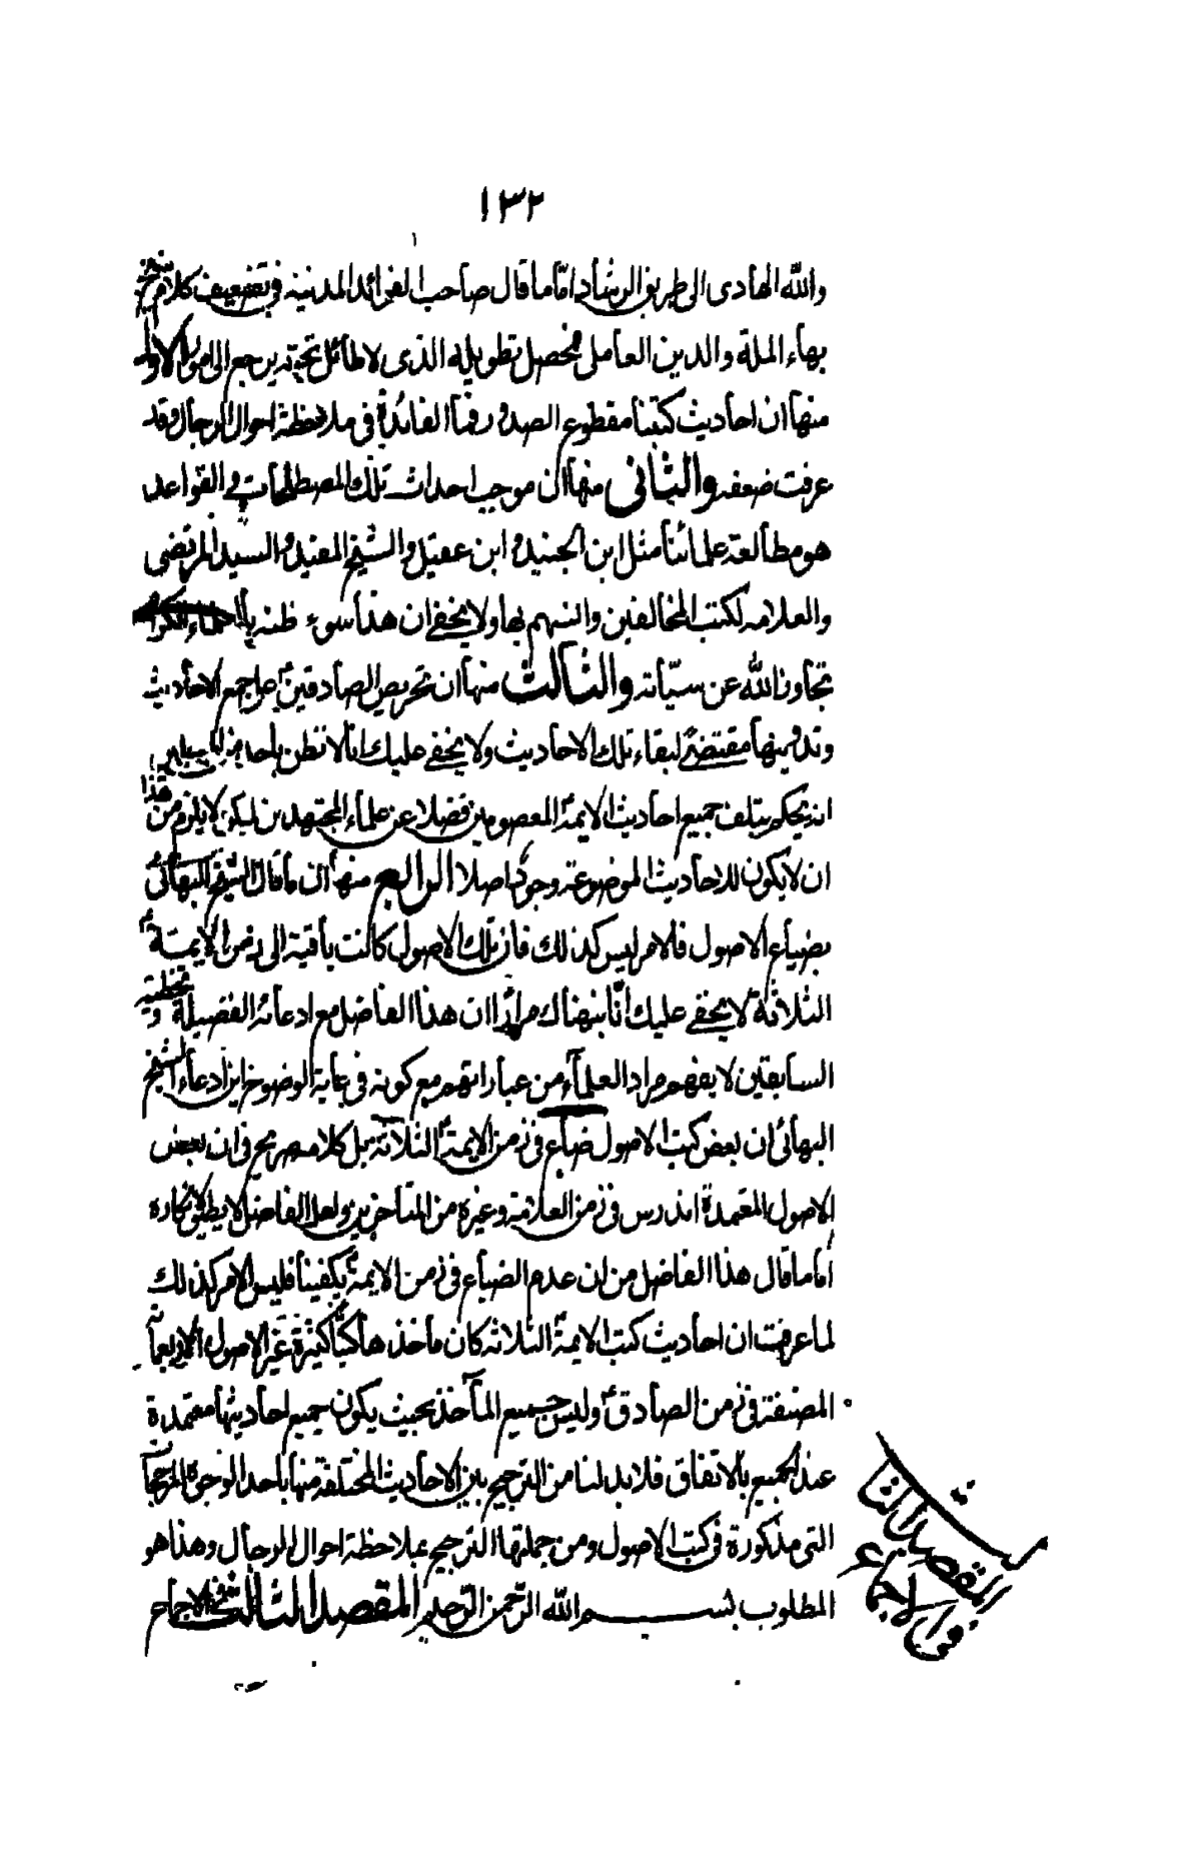 ١٣٢
والله الهادى الى طريق الرشاد اما ما قال صاحب الفوائد المدنية فى تضعيف كلام شيخ
بهاء الملة والدين العاملى فمحصل تطويله الذى لا طائل تحته يرجع الى امور الاول
منها ان احاديث كتبنا مقطوع الصدور فما الفائدة فى ملاحظة احوال الرجال وقد
عرفت ضعفه والثانى منها ان موجب احداث تلك المصطلحات فى القواعد
هو مطالعة علمائنا مثل ابن الجنيد وابن عقيل والشيخ المفيد والسيد المرتضى
والعلامه لكتب المخالفين وانسهم بها ولا يخفى ان هذا سوء ظنه بالعلماء الكرام
تجاوز الله عن سيّأته والثالث منها ان تحريص الصادقين ع على جمع الاحاديث
وتدوينها مقتضى لبقاء تلك الاحاديث ولا يخفى عليك انا لا نظن باحد من
انه يحكم بتلف جميع احاديث الايمة المعصومين فضلا عن علماء المجتهدين ليكن لا يلزم من هذا
ان لا يكون للاحاديث الموضوعة وجود اصلا الرابع منها ان ما قال الشيخ البهائى
بضياع الاصول فالامر ليس كذلك فان تلك الاصول كانت باقية الى زمن الايمة
الثلاثة لا يخفى عليك انّا نبهناك مرارًا ان هذا الفاضل مع ادعائه الفضيلة وتخطئة
السابقين لا يفهم مراد العلماء من عباراتهم مع كونه فى غاية الوضوح اين ادعاء الشيخ
البهائى ان بعض كتب الاصول ضاع فى زمن الايمة الثلاثة بل كلامه صريح فى ان بعض
الاصول المعتمدة اندرس فى زمن العلامة وغيره من المتأخرين ولعل الفاضل لا يطيق انكاره
أما ما قال هذا الفاضل من ان عدم الضياع فى زمن الايمة يكفينا فليس الامر كذلك
لما عرفت ان احاديث كتب الايمة الثلاثه كان مأخذها كتبًا كثيرة غير الاصول الاربعمأة
المصنفة فى زمن الصادق ع وليس جميع المآخذ بحيث يكون جميع احاديثها معتمدة
عند الجميع بالاتفاق فلا بد لنا من الترجيح بين الاحاديث المختلفة منها باحد الوجوه المرجحة
التى مذكورة فى كتب الاصول ومن جملتها الترجيح بملاحظة احوال الرجال وهذا هو
المطلوب بسم الله الرحمن الرحيم المقصد الثالث فى الاجماع
المقصد الثالث
فى الاجماع